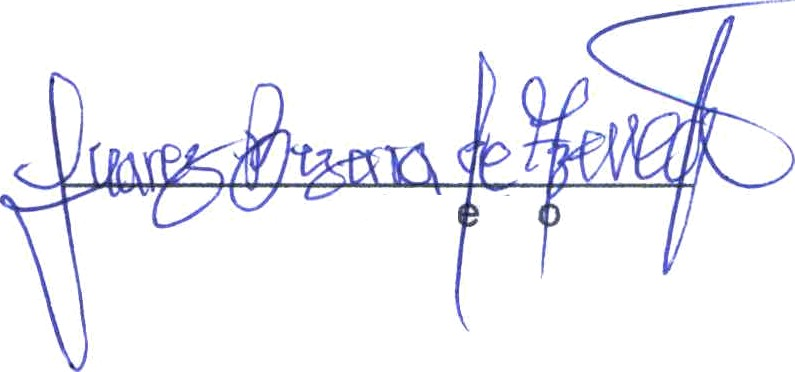 Juarez Bezerra de Azevedo
e o